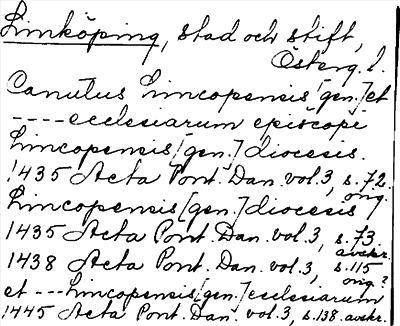 Linköping, stad och stift,
Österg. l.
Canutus Lincopensis [gen.] et
---- ecclesiarum episcopi
Lincopensis [gen.] diocesis.
1435 Acta Pont. Dan. vol. 3, s. 72.
orig.
Lincopensis [gen.] diocesis
1435 Acta Pont. Dan. vol. 3, s. 73
avskr.
1438 Acta Pont. Dan. vol. 3, s. 115
orig.?
et --- Lincopensis [gen.] ecclesiarum
1445 Acta Pont. Dan. vol. 3, s. 138. avskr.